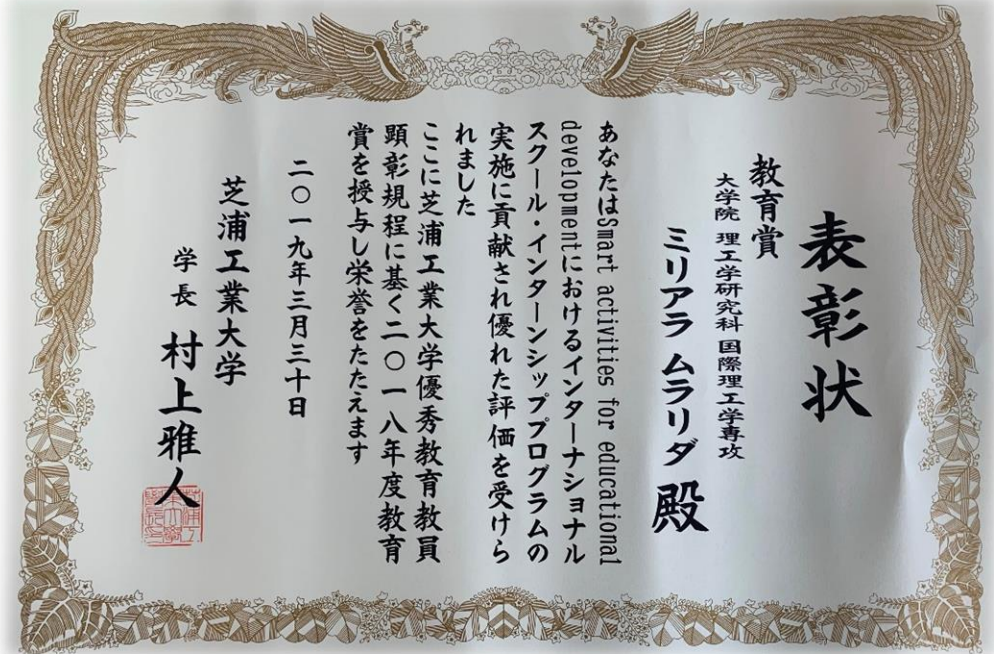 表彰状
教育賞
大学院 理工学研究科 国際理工学専攻
ミリアラ ムラリダ 殿
あなたはSmart activities for educational
developmentにおけるインターナショナル
スクール・インターンシッププログラムの
実施に貢献され優れた評価を受けら
れました
ここに芝浦工業大学優秀教育教員
顕彰規程に基く二〇一八年度教育
賞を授与し栄誉をたたえます
二〇一九年三月三十日
芝浦工業大学
学長 村上雅人